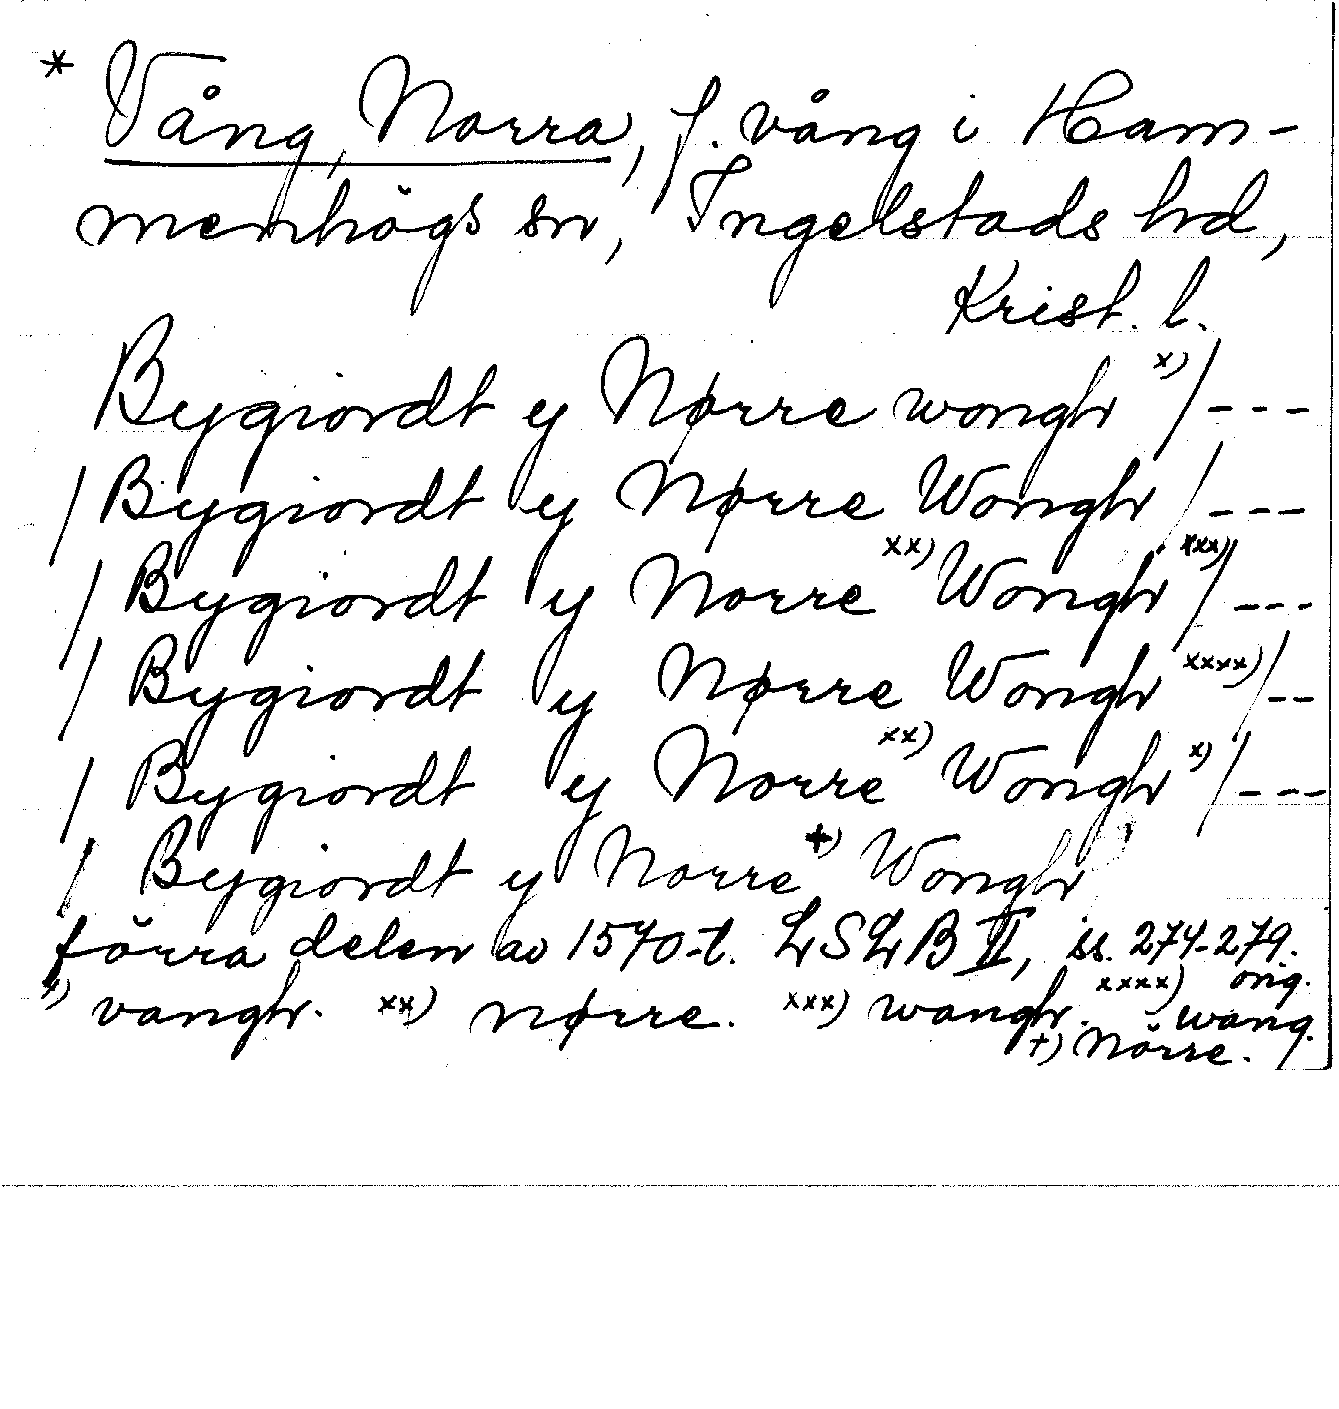 * Vång, Norra, f. vång i Ham-
menhögs sn, Ingelstads hd,
Krist. l.
Bygiordt y Nørre wongh x) / ---
/ Bygiordt y Nørre Wongh / ---
/ Bygiordt y Norre xx) Wongh xxx) / ---
/ Bygiordt y Nørre Wongh xxxx) / --
/ Bygiordt y Norre xx) Wongh x) / ---
/ Bygiordt y Norre +) Wongh
förra delen av 1570-t. LSLB II, ss. 274-279.
x) vangh. xx) nørre. xxx) wangh. xxxx) orig. wang.
+) Nörre.